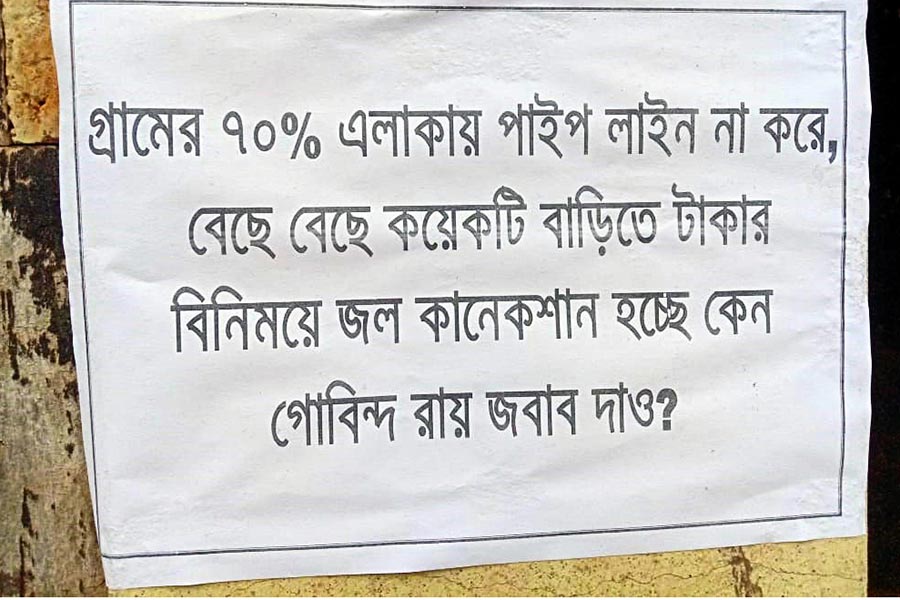 গ্রামের ৭০% এলাকায় পাইপ লাইন না করে,
বেছে বেছে কয়েকটি বাড়িতে টাকার
বিনিময়ে জল কানেকশান হচ্ছে কেন
গোবিন্দ রায় জবাব দাও?